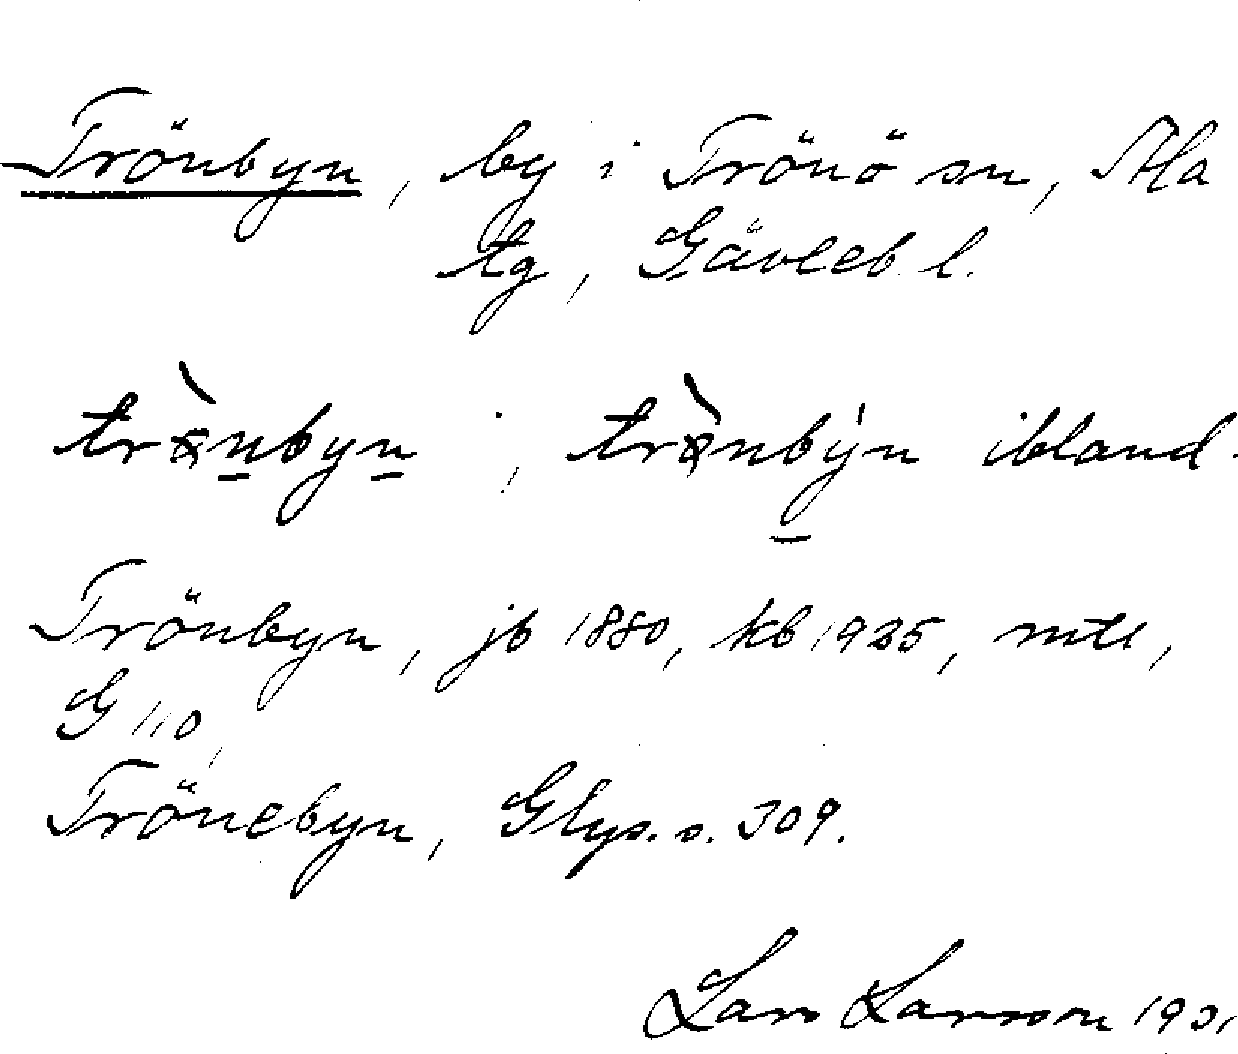 Trönbyn, by i Trönö sn, Ala
tg, Gävleb. l.
trö̀nbyn, trö̀nbýn ibland.
Trönbyn, jb 1880, kb 1925, mtl,
G 110,
Trönebyn, Glys. s. 309.
Lars Larsson 1931